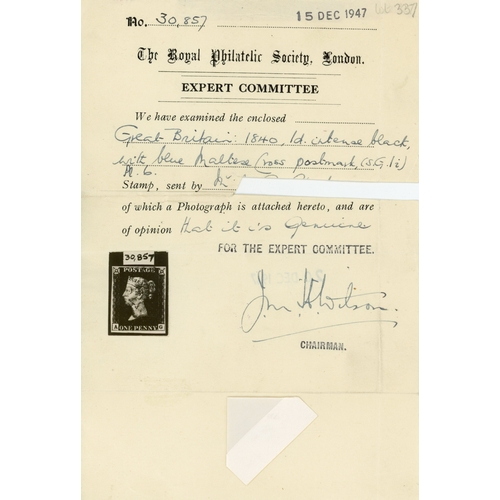 No. 30,857
15 DEC 1947
The Royal Philatelic Society, London.
EXPERT COMMITTEE
We have examined the enclosed
Great Britain: 1840, 1d. intense black,
with blue Maltese Cross postmark, (S.G. 1
Stamp, sent by
of which a Photograph is attached hereto, and are
of opinion that it is genuine
FOR THE EXPERT COMMITTEE.
30,857
POSTAGE
A G
ONE PENNY
J.M. H. Wilson.
CHAIRMAN.